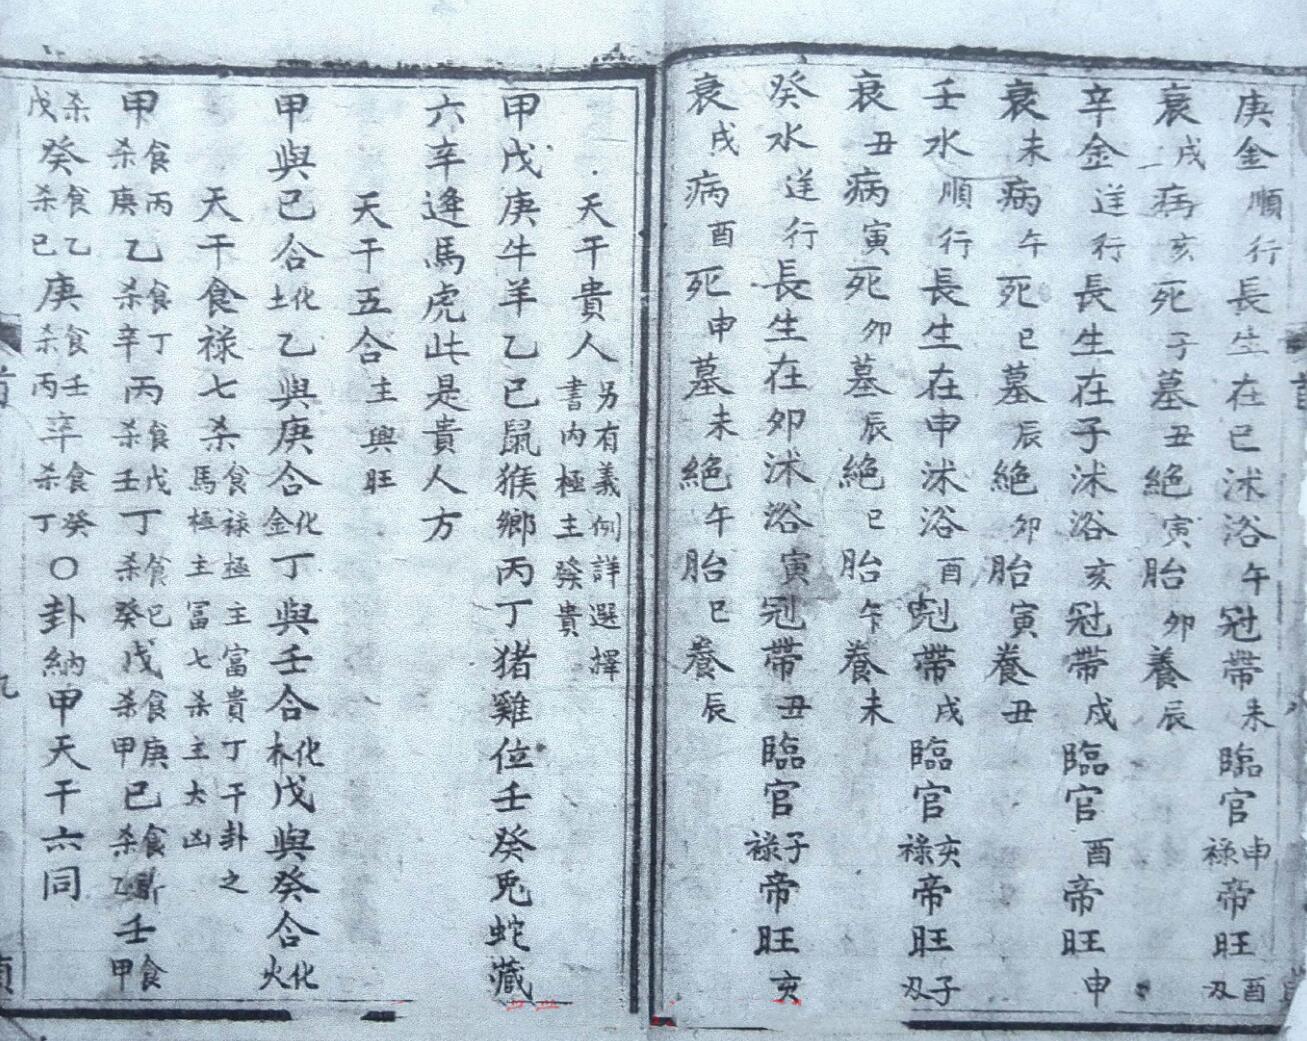 庚金順行長生在巳沭浴午冠帶未臨官申祿帝旺酉刄
衰戌病亥死子墓丑絕寅胎卯養辰
辛金逆行長生在子沭浴亥冠帶戌臨官酉帝旺申
衰未病午死巳墓辰絕卯胎寅養丑
壬水順行長生在申沭浴酉冠帶戌臨官亥祿帝旺子刄
衰丑病寅死卯墓辰絕巳胎午養未
癸水逆行長生在卯沭浴寅冠帶丑臨官子祿帝旺亥
衰戌病酉死申墓未絕午胎巳養辰
天干貴人另有義例詳選擇書內極主發貴
甲戊庚牛羊乙巳鼠猴鄉丙丁猪雞位壬癸兎蛇藏
六辛逢馬虎此是貴人方
天干五合主興旺
甲與己合化土乙與庚合化金丁與壬合化木戊與癸合化火
天干食祿七杀食祿極主富貴丁干卦之馬極主冨七杀主大凶
甲食丙杀庚乙食丁杀辛丙食戊杀壬丁食己杀癸戊食庚杀甲己食辛杀乙壬食甲
杀戊癸食乙杀己庚食壬杀丙辛食癸杀丁〇卦納甲天干六同